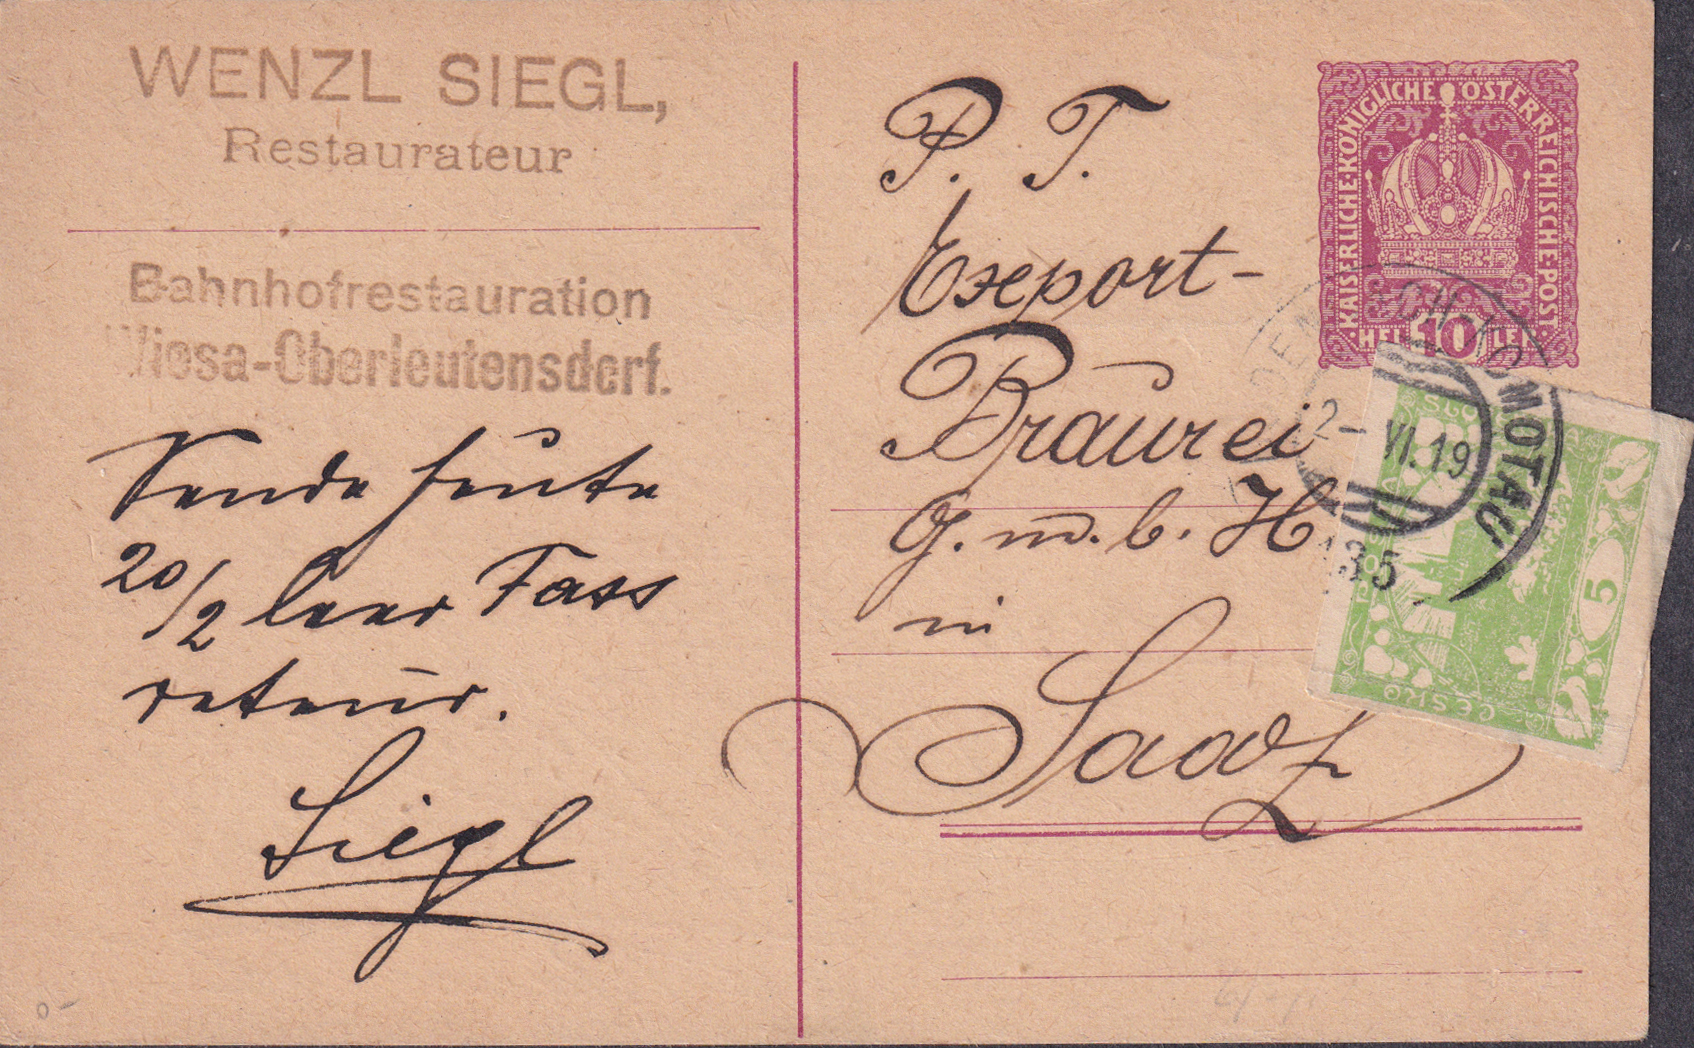 WENZL SIEGL,
Restaurateur
Bahnhofrestauration
Wiesa-Oberleutensdorf.
Sende heute
20/2 leer Fass
retour.
Siegl
P. T.
Export-
Brauerei
G. m. b. H
in
Saaz
KAISERLICHE·KÖNIGLICHE ÖSTERREICHISCHE·POST
HEL 10 LER
KOMOTAU
2- VI. 19
135
5